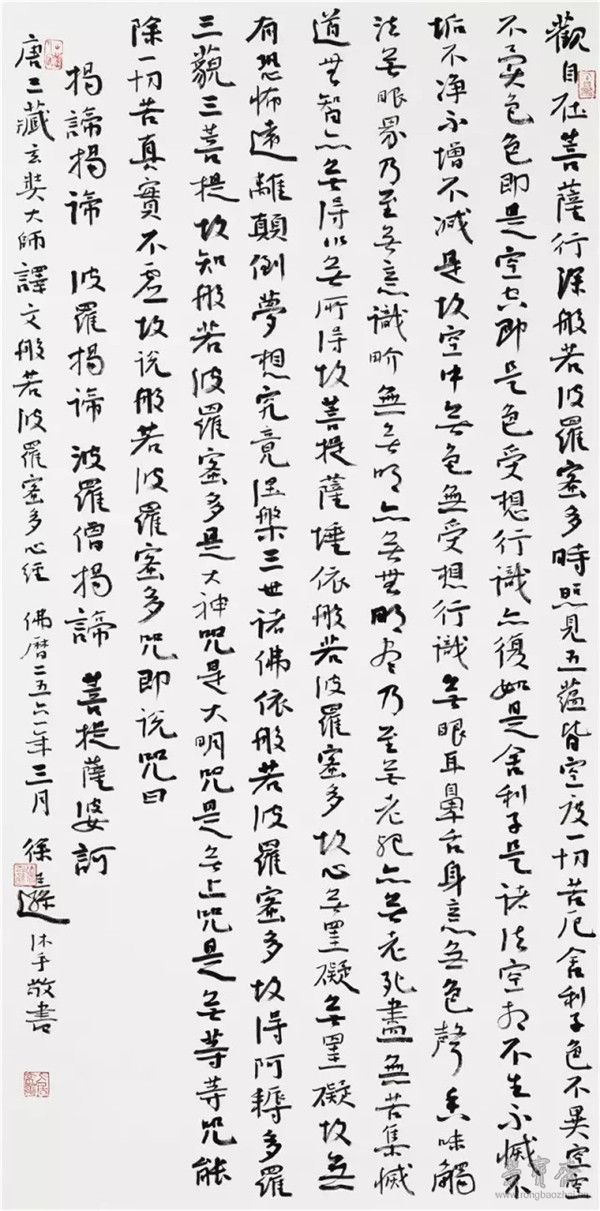 觀自在菩薩行深般若波羅蜜多時照見五蘊皆空度一切苦厄舍利子色不異空空
不異色色即是空空即是色受想行識亦復如是舍利子是諸法空相不生不滅不
垢不淨不增不減是故空中無色無受想行識無眼耳鼻舌身意無色聲香味觸
法無眼界乃至無意識界無無明亦無無明盡乃至無老死亦無老死盡無苦集滅
道無智亦無得以無所得故菩提薩埵依般若波羅蜜多故心無罣礙無罣礙故無
有恐怖遠離顛倒夢想究竟涅槃三世諸佛依般若波羅蜜多故得阿耨多羅
三藐三菩提故知般若波羅蜜多是大神咒是大明咒是無上咒是無等等咒能
除一切苦真實不虛故說般若波羅蜜多咒即說咒曰
揭諦揭諦 波羅揭諦 波羅僧揭諦 菩提薩婆訶
唐三藏玄奘大師譯文般若波羅蜜多心經 佛曆二五六一年三月 徐 沐手敬書
www.rongbaozhai.cn